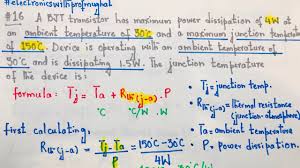 #electronicswithprofmughal
#16 A BJT transistor has maximum power dissipation of 4W at
an ambient temperature of 30°C and a maximum junction temperature
of 150°C. Device is operating with an ambient temperature of
30°C and is dissipating 1.5W. The junction temperature
of the device is:
formula: Tj = Ta + Rth(j-a) . P
°C °C °C/W W
• Tj = junction temp.
• Rth(j-a) = thermal resistance
(junction-atmosphere)
• Ta = ambient temperature
• P = power dissipation.
first calculating,
Rth(j-a) = Tj - Ta / P = 150°C - 30°C / 4W